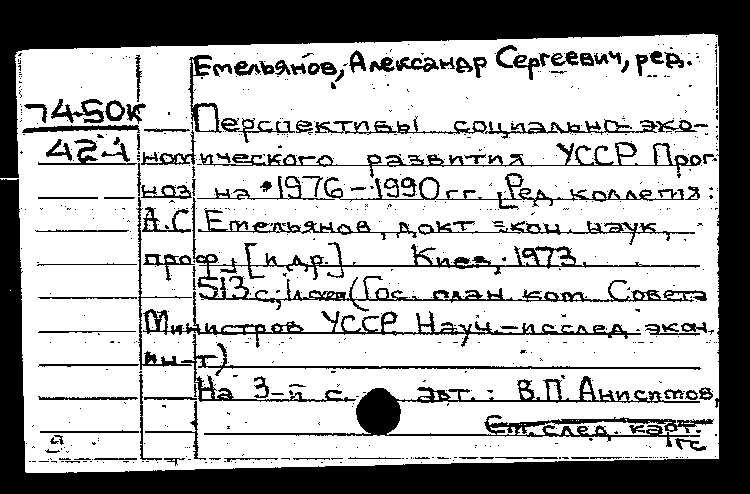 Емельянов, Александр Сергеевич, ред.
74-50к
424
Перспективы социально-эко-
номического развития УССР. Прог-
ноз на 1976-1990 гг. [Ред. коллегия:
А.С. Емельянов, докт. экон. наук,
проф.] [и др.]. Киев, 1973.
513 с.; 1 схем (Гос. план. ком. Совета
Министров УССР. Науч.-исслед. экон.
ин-т)
На 3-й с. авт.: В.П. Анисимов,
См. след. карт.